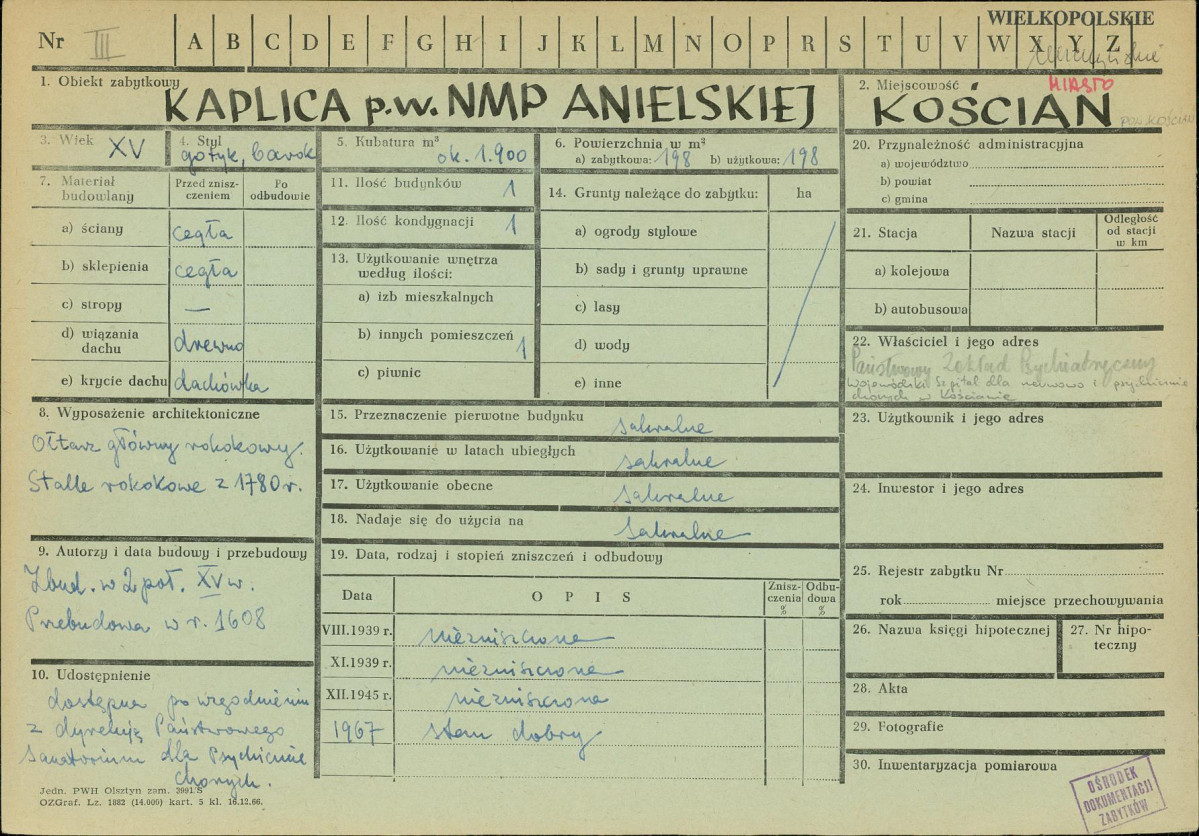 WIELKOPOLSKIE
Nr III A B C D E F G H I J K L M N O P R S T U V W X Y Z
1. Obiekt zabytkowy
KAPLICA p.w. NMP ANIELSKIEJ
2. Miejscowość MIASTO
KOŚCIAN
pow. KOŚCIAN
3. Wiek XV
4. Styl
gotyk, barok
5. Kubatura m³
ok. 1.900
6. Powierzchnia w m²
a) zabytkowa: 198 b) użytkowa: 198
20. Przynależność administracyjna
a) województwo
b) powiat
c) gmina
7. Materiał budowlany
Przed zniszczeniem
Po odbudowie
a) ściany cegła
b) sklepienia cegła
c) stropy —
d) wiązania dachu drewno
e) krycie dachu dachówka
11. Ilość budynków 1
12. Ilość kondygnacji 1
13. Użytkowanie wnętrza
według ilości:
a) izb mieszkalnych
b) innych pomieszczeń 1
c) piwnic
14. Grunty należące do zabytku: ha
a) ogrody stylowe
b) sady i grunty uprawne
c) lasy
d) wody
e) inne
21. Stacja
Nazwa stacji
Odległość
od stacji
w km
a) kolejowa
b) autobusowa
22. Właściciel i jego adres
Państwowy Zakład Psychiatryczny
Wojewódzki Szpital dla nerwowo i psychicznie
chorych w Kościanie
8. Wyposażenie architektoniczne
Ołtarz główny rokokowy.
Stalle rokokowe z 1780 r.
15. Przeznaczenie pierwotne budynku
sakralne
16. Użytkowanie w latach ubiegłych
sakralne
17. Użytkowanie obecne
sakralne
18. Nadaje się do użycia na
sakralne
23. Użytkownik i jego adres
24. Inwestor i jego adres
9. Autorzy i data budowy i przebudowy
Zbud. w 2 poł. XV w.
Przebudowa w r. 1608
19. Data, rodzaj i stopień zniszczeń i odbudowy
Data
O P I S
Zniszczenia
%
Odbudowa
%
VIII.1939 r. niezniszczona
XI.1939 r. niezniszczona
XII.1945 r. niezniszczona
1967 stan dobry
25. Rejestr zabytku Nr
rok miejsce przechowywania
26. Nazwa księgi hipotecznej
27. Nr hipoteczny
28. Akta
29. Fotografie
30. Inwentaryzacja pomiarowa
10. Udostępnienie
dostępna po uzgodnieniu
z dyrekcją Państwowego
Sanatorium dla Psychicznie
Chorych.
Jedn. PWH Olsztyn zam. 3991/S
OZGraf. Lz. 1882 (14.000) kart. 5 kl. 16.12.66.
OŚRODEK
DOKUMENTACJI
ZABYTKÓW